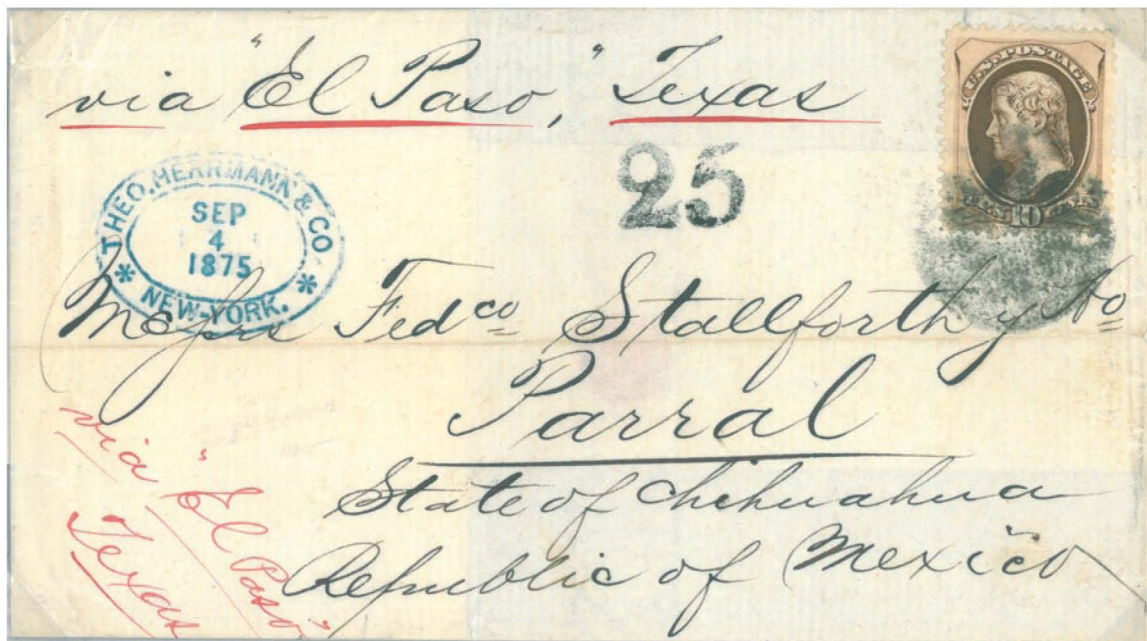 via "El Paso," Texas
U.S. POSTAGE
TEN 10 CENTS
25
THEO. HERRMANN & CO.
SEP
4
1875
* NEW-YORK. *
Messrs Fedco Stallforth y Co
Parral
State of Chihuahua
Republic of Mexico
via "El Paso"
Texas